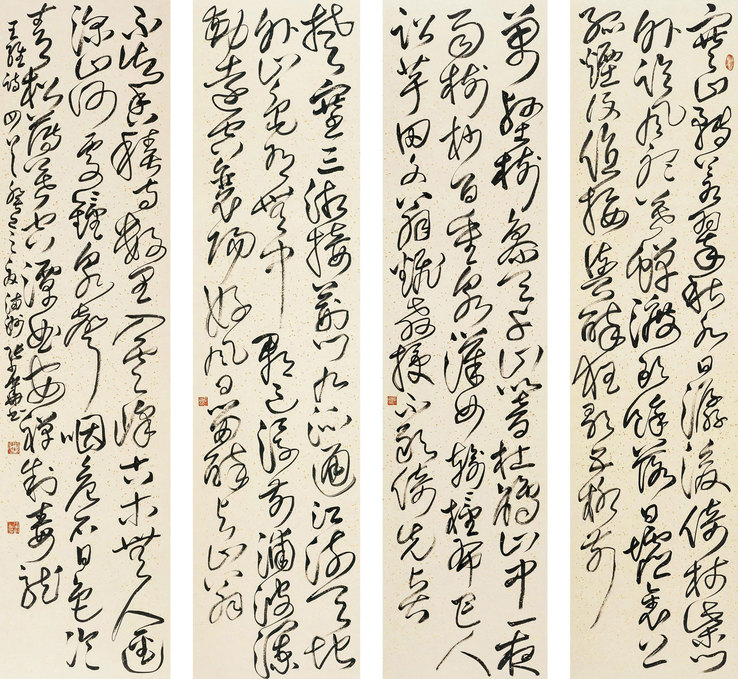 寒山轉蒼翠秋水日潺湲倚杖柴門
外臨風聽暮蟬渡頭餘落日墟里上
孤煙復值接輿醉狂歌五柳前
萬壑樹參天千山響杜鵑山中一夜
雨樹杪百重泉漢女輸橦布巴人
訟芋田文翁翻教授不敢倚先賢
楚塞三湘接荊門九派通江流天地
外山色有無中郡邑浮前浦波瀾
動遠空襄陽好風日留醉與山翁
不知香積寺數里入雲峰古木無人徑
深山何處鐘泉聲咽危石日色冷
青松薄暮空潭曲安禪制毒龍
王維詩四首癸巳之夏